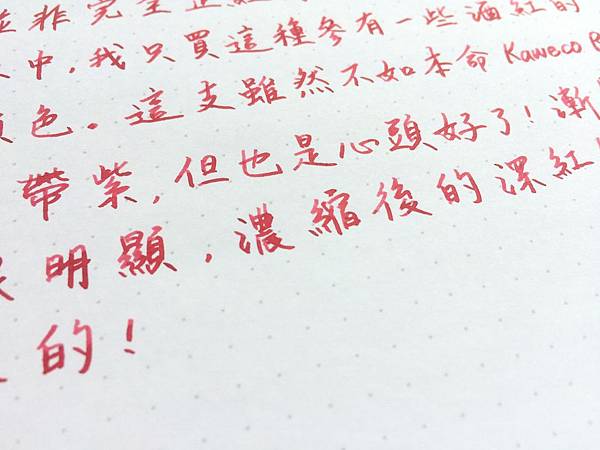 並非完全正紅
中,我只買這種參有一些酒紅的
色。這支雖然不如本命 Kaweco
帶紫,但也是心頭好了!漸
明顯,濃縮後的深紅
的!